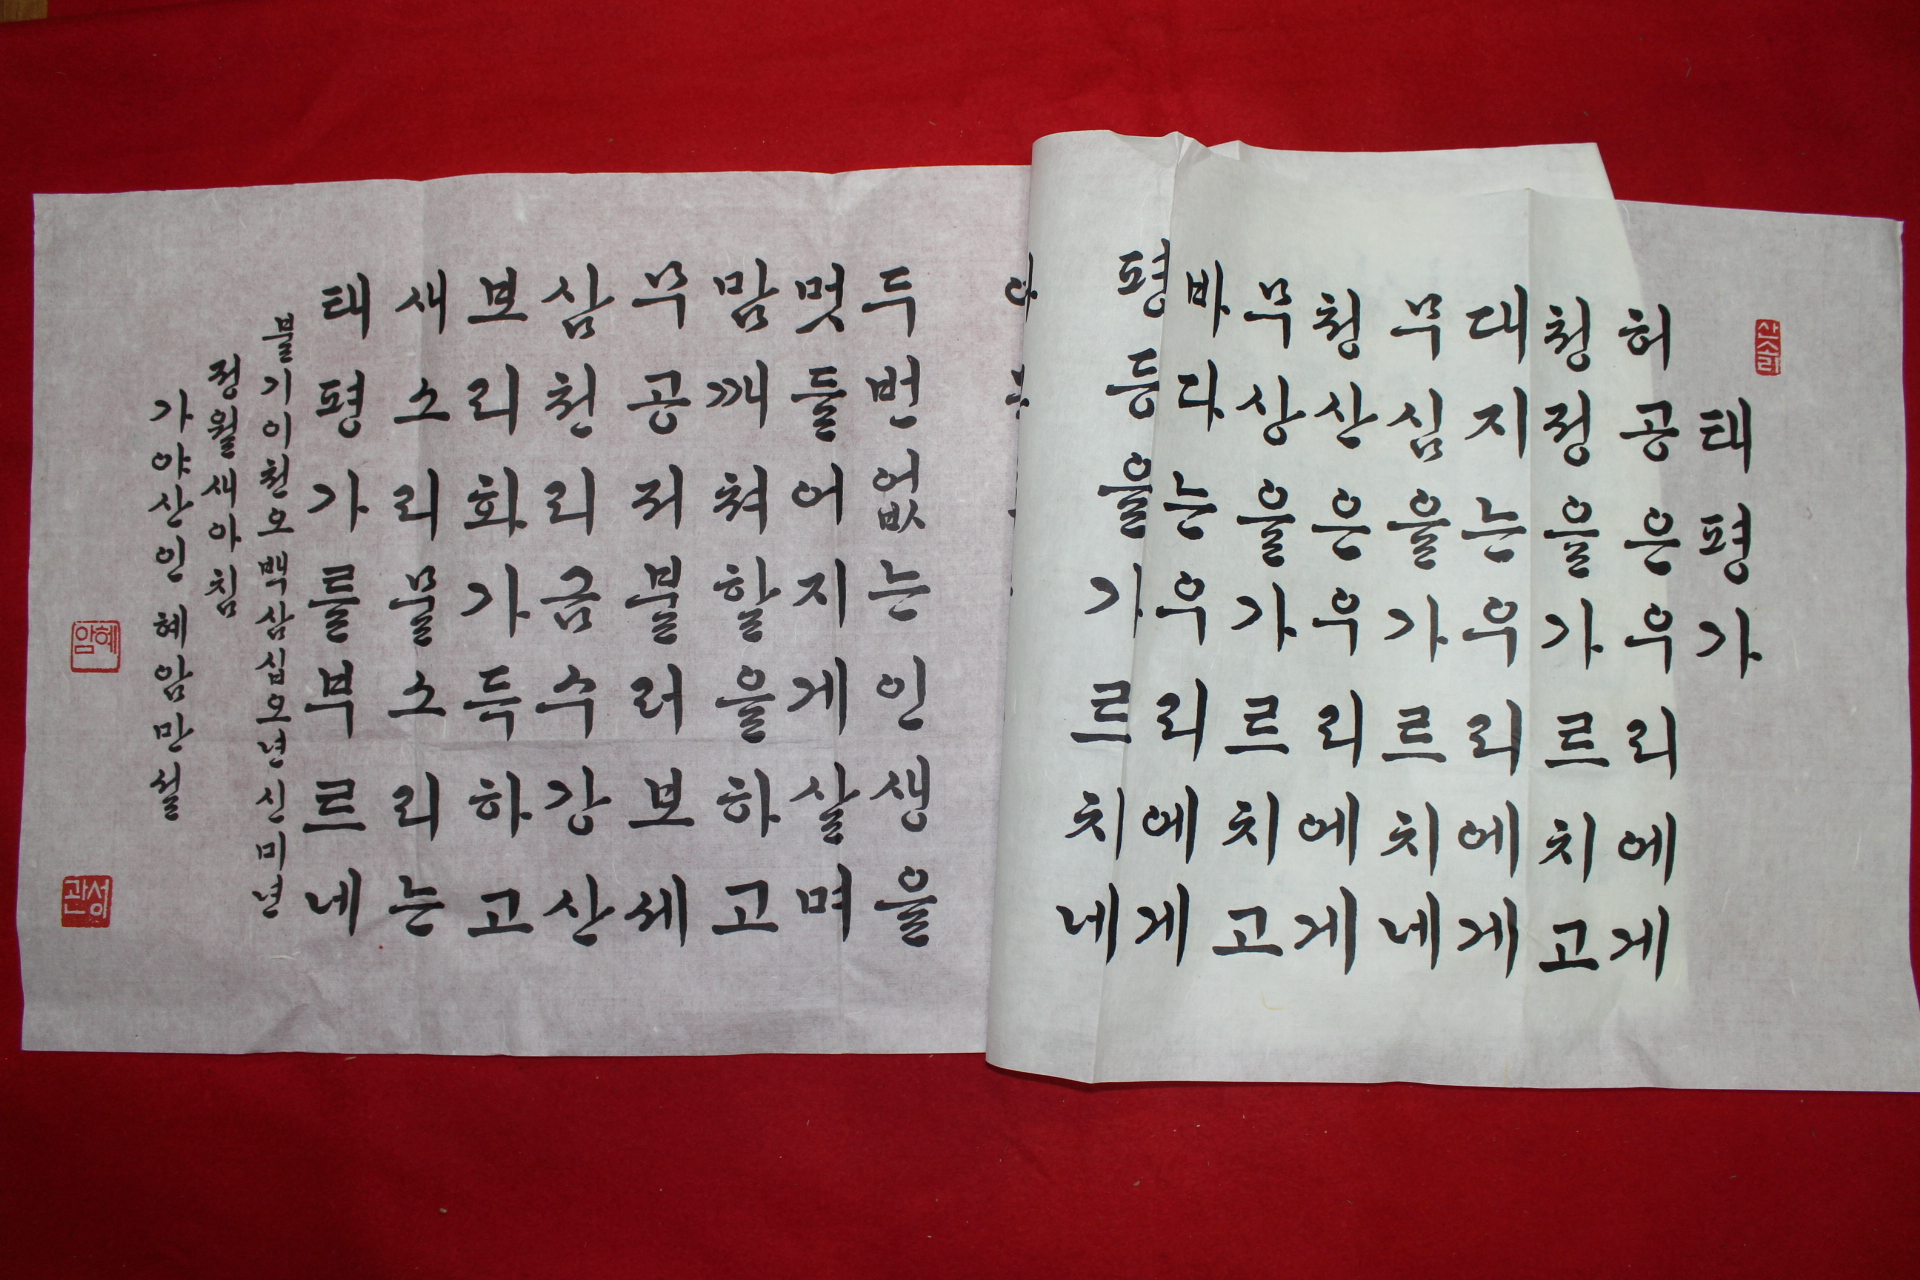 산소리
태평가
허공은우리에게
청정을가르치고
대지는우리에게
무심을가르치네
청산은우리에게
무상을가르치고
바다는우리에게
평등을가르치네
두번없는인생을
멋들어지게살며
맘깨쳐할을하고
무공저불러보세
삼천리금수강산
보리화가득하고
새소리물소리는
태평가를부르네
불기이천오백삼십오년신미년
정월새아침
가야산인혜암만설
혜암
성관